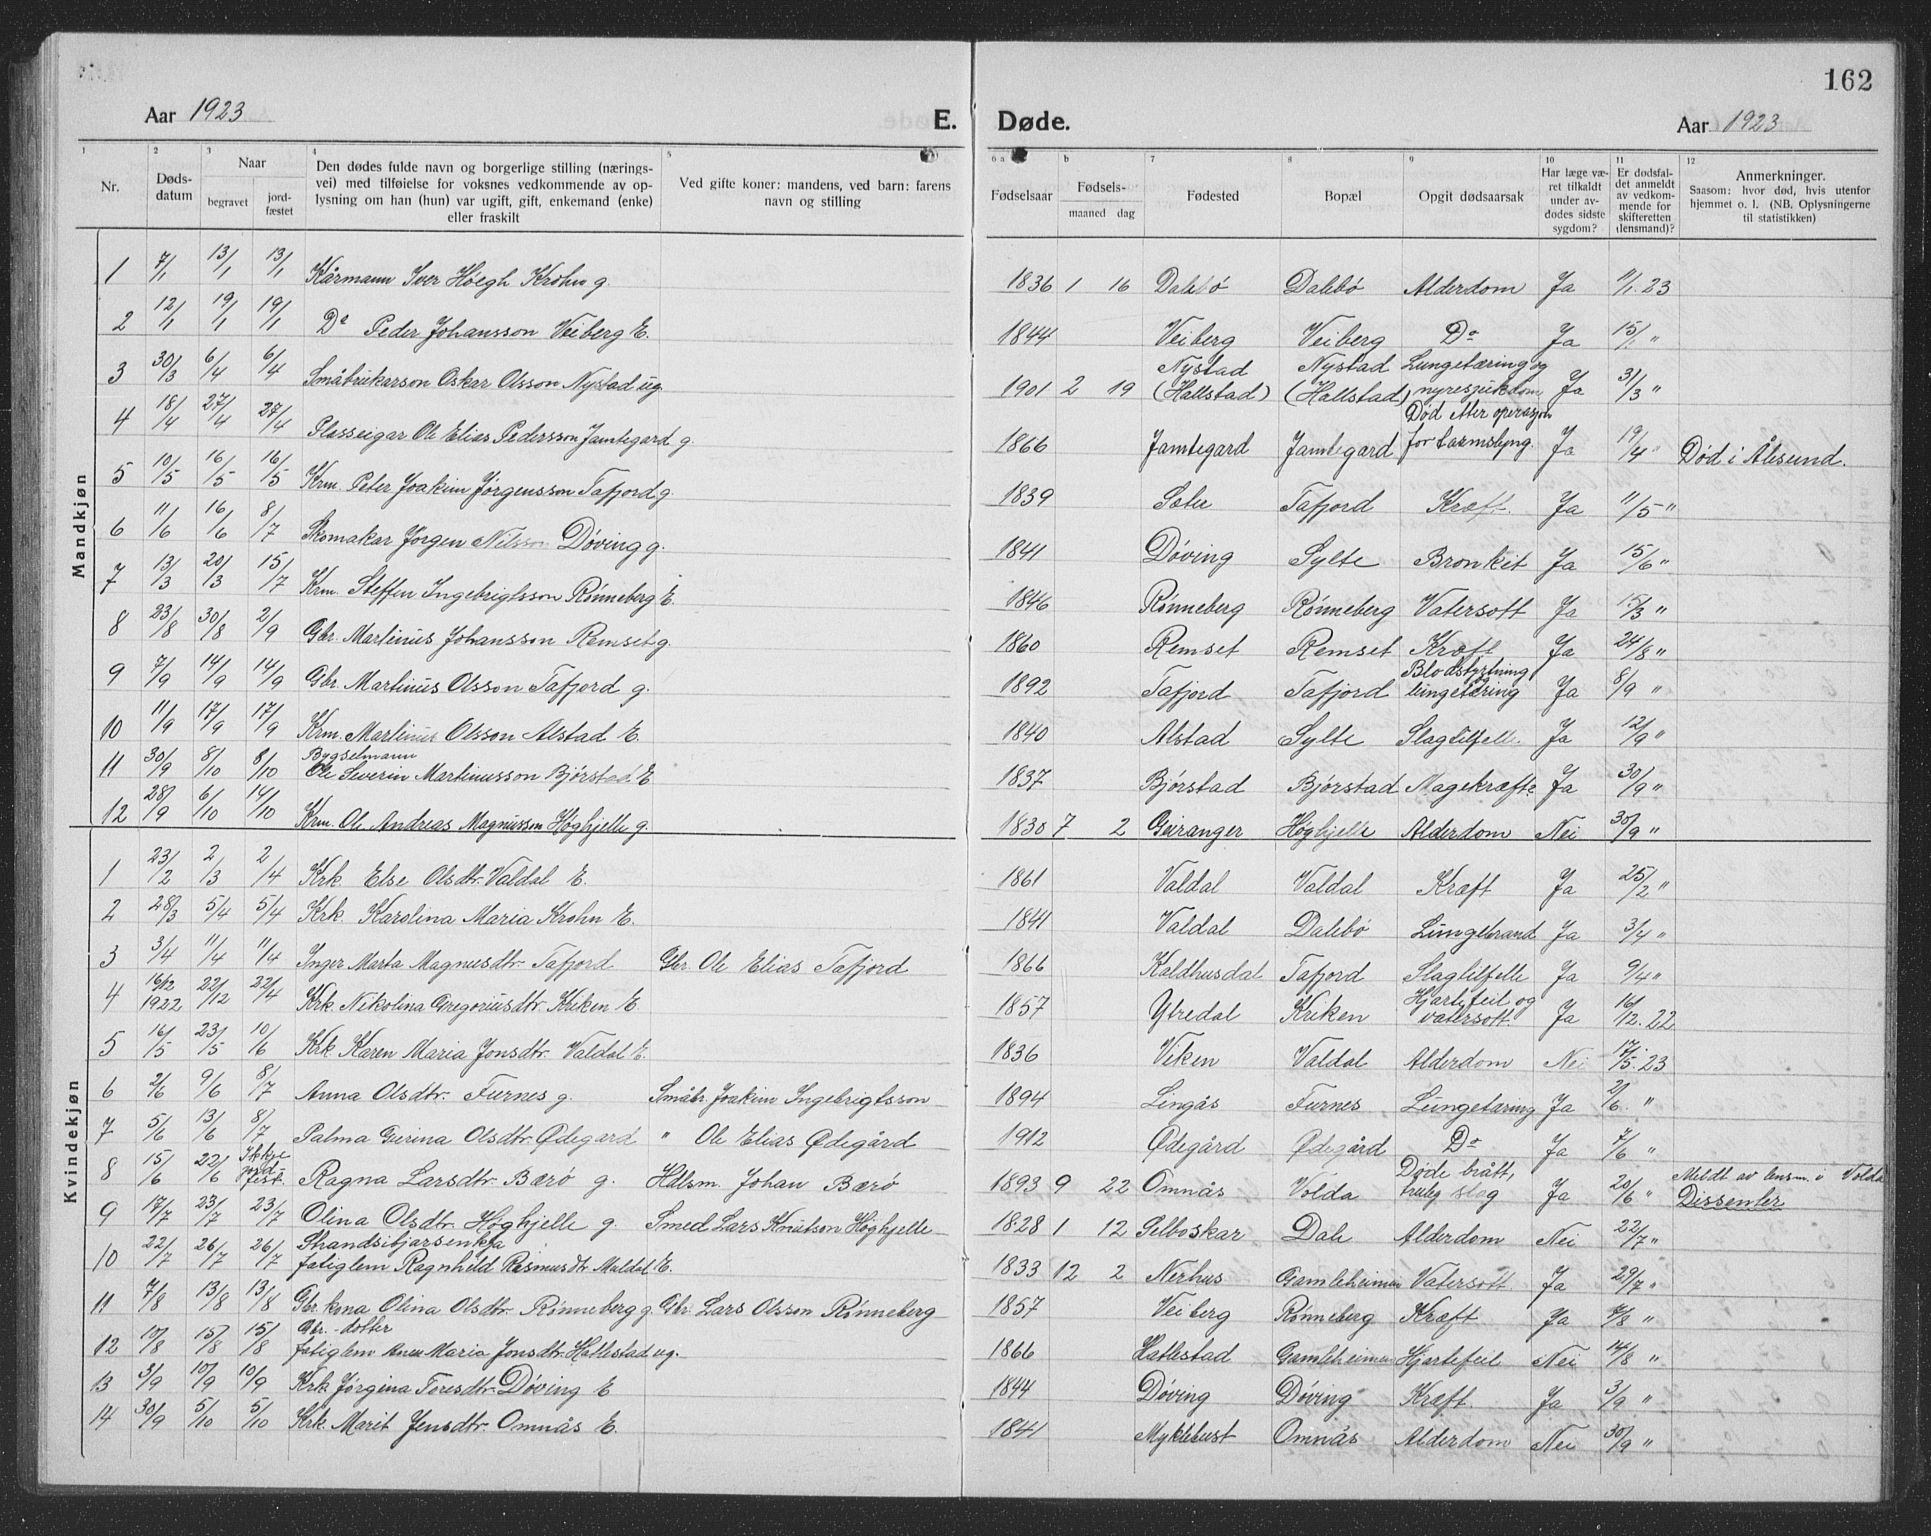 162
Aar 1923 E. Døde. Aar 1923
1 2 3 4 5 6 a b 7 8 9 10 11 12
Nr. Døds-datum Naar begravet jord-fæstet Den dødes fulde navn og borgerlige stilling (nærings-vei) med tilføielse for voksnes vedkommende av op-lysning om han (hun) var ugift, gift, enkemand (enke) eller fraskilt Ved gifte koner: mandens, ved barn: farens navn og stilling Fødselsaar Fødsels- maaned dag Fødested Bopæl Opgit dødsaarsak Har læge væ-ret tilkaldt under av-dødes sidste sygdom? Er dødsfal-det anmeldt av vedkom-mende for skifteretten (lensmand)? Anmerkninger. Saasom: hvor død, hvis utenfor hjemmet o. l. (NB. Oplysningerne til statistikken)
Mandkjøn
1 7/1 13/1 13/1 Kårmann Iver Höegh Krohn g. 1836 1 16 Dalebö Dalebö Alderdom Ja 11/1 23
2 12/1 19/1 19/1 Do Peder Johansson Veiberg E. 1844 Veiberg Veiberg Do Ja 15/1 "
3 30/3 6/4 6/4 Småbrukarson Oskar Olsson Nystad ug. 1901 2 19 Nystad (Hallstad) Nystad (Hallstad) Lungetæring og nyresjukdom Ja 31/3 "
4 18/4 27/4 27/4 Plasseigar Ole Elias Pedersson Jamtegard g. 1866 Jamtegard Jamtegard Död etter operasjon for tarmslyng. Ja 19/4 " Död i Ålesund.
5 10/5 16/5 16/5 Krm. Peter Joakim Jörgensson Tafjord g. 1839 Sætu Tafjord Kræft. Ja 11/5 "
6 11/6 16/6 8/7 Skomakar Jörgen Nilsson Döving g. 1841 Döving Sylte Bronkit Ja 15/6 "
7 13/3 20/3 15/7 Krm. Steffen Ingebrigtsson Rönneberg E. 1846 Rönneberg Rönneberg Vatersott Ja 15/3 "
8 23/8 30/8 2/9 Gbr. Martinus Johansson Remset g. 1860 Remset Remset Kræft Ja 24/8 "
9 7/9 14/9 14/9 Gbr. Martinus Olsson Tafjord g. 1892 Tafjord Tafjord Blodstyrtning og lungetæring Ja 8/9 "
10 11/9 17/9 17/9 Krm. Martinus Olsson Alstad E. 1840 Alstad Sylte Slagtilfelle. Ja 12/9 "
11 30/9 8/10 8/10 Bygselmann Ole Severin Martinusson Bjørstad E 1837 Bjørstad Bjørstad Magekræft Ja 30/9 "
12 28/9 6/10 14/10 Krm. Ole Andreas Magnusson Höghjelle g. 1830 7 2 Geiranger Höghjelle Alderdom Nei 30/9 "
Kvindekjøn
1 23/2 2/3 2/4 Krk. Else Olsdtr. Valdal E. 1861 Valdal Valdal Kræft Ja 25/2 "
2 28/3 5/4 5/4 Krk. Karolina Maria Krohn E. 1841 Valdal Dalebö Lungebrand Ja 3/4 "
3 3/4 11/4 11/4 Inger Marta Magnusdtr. Tafjord Gbr. Ole Elias Tafjord 1866 Kaldhusdal Tafjord Slagtilfelle Ja 9/4 "
4 16/12 1922 22/12 22/4 Krk. Nikolina Gregoriusdtr. Kriken E 1857 Ytredal Kriken Hjartefeil og vatersott Ja 16/12. 22
5 16/5 23/5 10/6 Krk Karen Maria Jonsdtr. Valdal E. 1836 Viken Valdal Alderdom Nei 17/5. 23
6 2/6 9/6 8/7 Anna Olsdtr. Furnes g. Småbr. Joakim Ingebrigtsson 1894 Lingås Furnes Lungetæring Ja 2/6. "
7 5/6 13/6 8/7 Palma Gurina Olsdtr. Ødegard " Ole Elias Ødegård 1912 Ødegård Ødegård Do Ja 7/6 "
8 15/6 22/6 Ikkje jord-fest. Ragna Larsdtr. Bærö g. Hdlsm. Johan Bærö 1893 9 22 Omnås Volda Döde brått, truleg slag Ja 20/6 " Meldt av lensm. i Volda Dissenter
9 17/7 23/7 23/7 Olina Olsdtr. Höghjelle g. Smed Lars Knutson Höghjelle 1828 1 12 Selboskar Dale Alderdom Nei 22/7 "
10 22/7 26/7 26/7 Strandsitjarsenkja fatiglem Ragnhild Rasmusdtr. Muldal E. 1833 12 2 Nerhus Gamleheimen Vatersott Ja 29/7 "
11 7/8 13/8 13/8 Gbr. kona Olina Olsdtr. Rönneberg g. Gbr. Lars Olsson Rönneberg 1857 Veiberg Rönneberg Kræft Ja 8/8 "
12 10/8 15/8 15/8 Gbr. dotter fatiglem Anne Maria Jonsdtr. Hatlestad ug. 1866 Hatlestad Gamleheimen Hjartefeil Nei 14/8 "
13 3/9 10/9 10/9 Krk Jörgina Toresdtr. Döving E 1844 Döving Döving Kræft. Ja 3/9 "
14 30/9 5/10 5/10 Krk. Marit Jensdtr. Omnås E. 1841 Myklebust Omnås Alderdom Nei 30/9 "